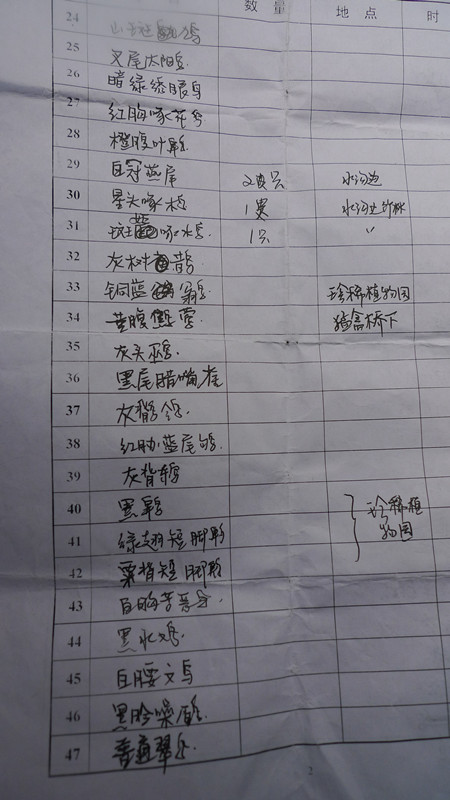 数量 地点 时
24 山斑鸠
25 叉尾太阳鸟
26 暗绿绣眼鸟
27 红胸啄花鸟
28 橙腹叶鹎
29 白冠燕尾 2只 水沟边
30 星头啄木 1 水沟边竹林
31 斑 啄木鸟 1只 〃
32 灰树鹊
33 铜蓝鹟 珍稀植物园
34 黄腹 莺 猛仑桥下
35 灰头鸦雀
36 黑尾腊嘴雀
37 灰鹡鸰
38 红胁蓝尾鸲
39 灰背鸫
40 黑鹎 珍稀植
41 绿翅短脚鹎 物园
42 栗背短脚鹎
43 白胸苦恶鸟
44 黑水鸡
45 白腰文鸟
46 黑 噪鹛
47 普通翠鸟
2